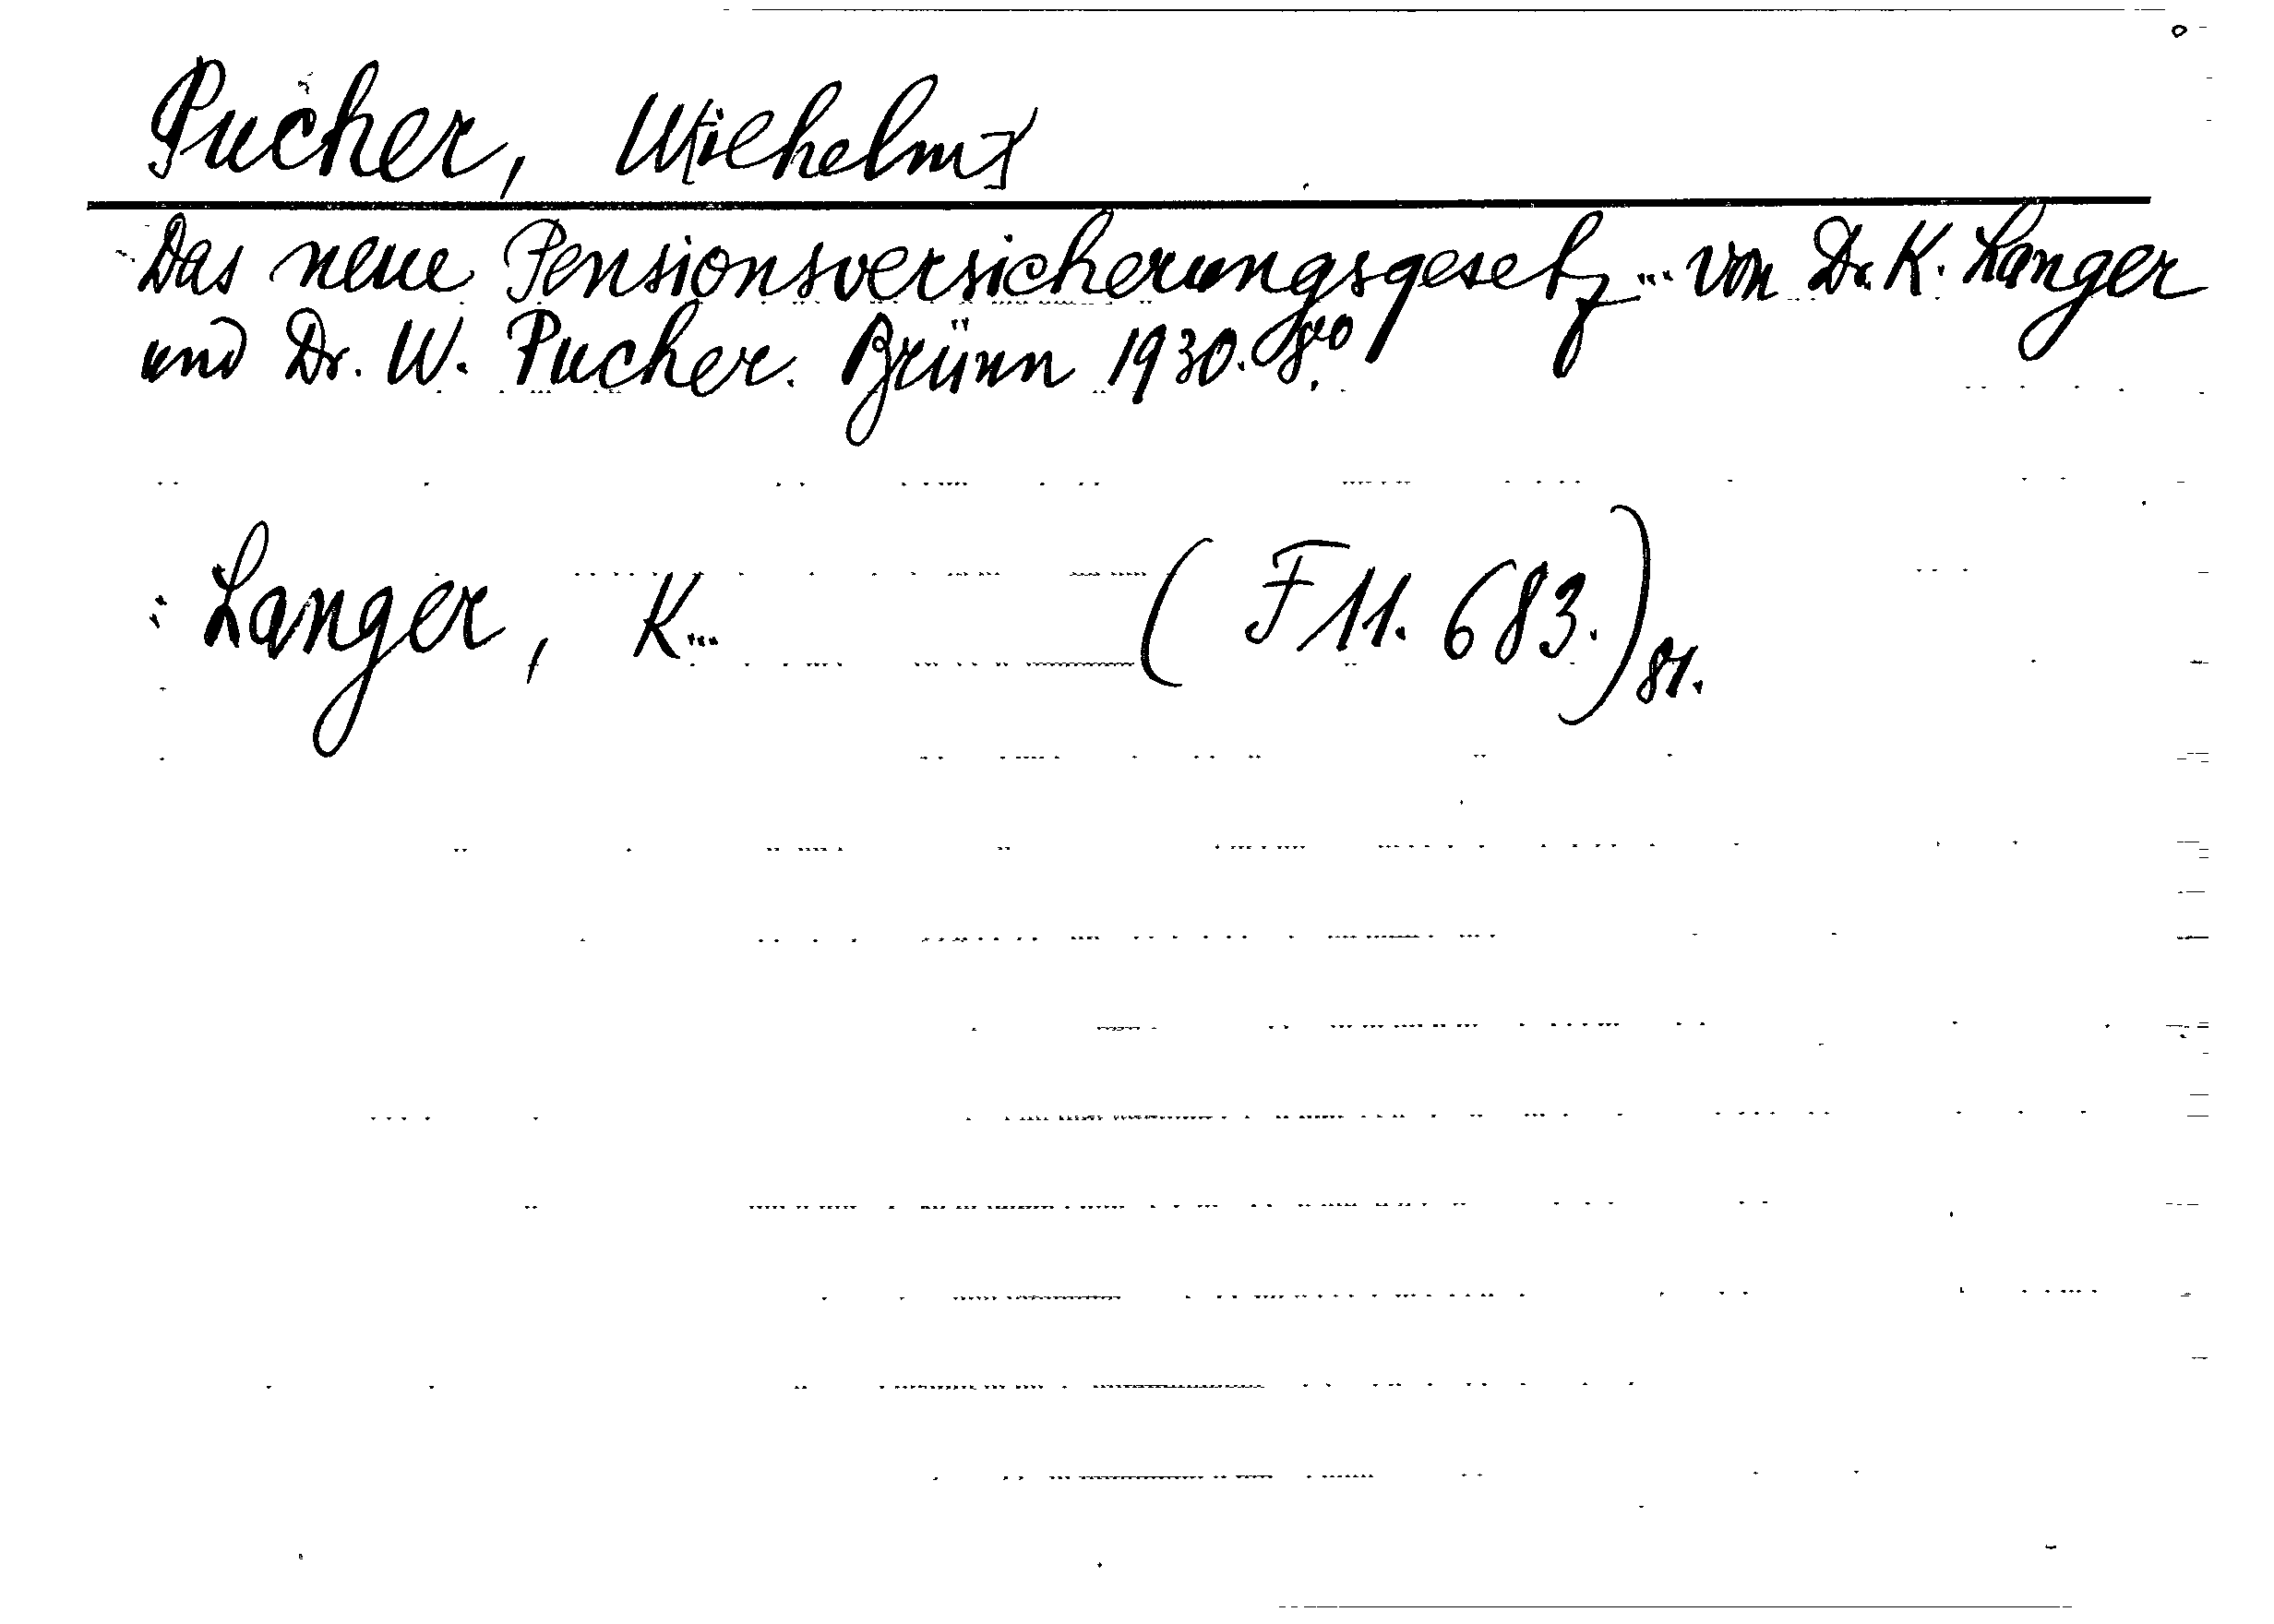 Pucher, W[ilhelm]
Das neue Pensionsversicherungsgesetz... von Dr. K. Langer
und Dr. W. Pucher. Brünn 1930. 8vo.
: Langer, K... (F 11. 683.) 81.